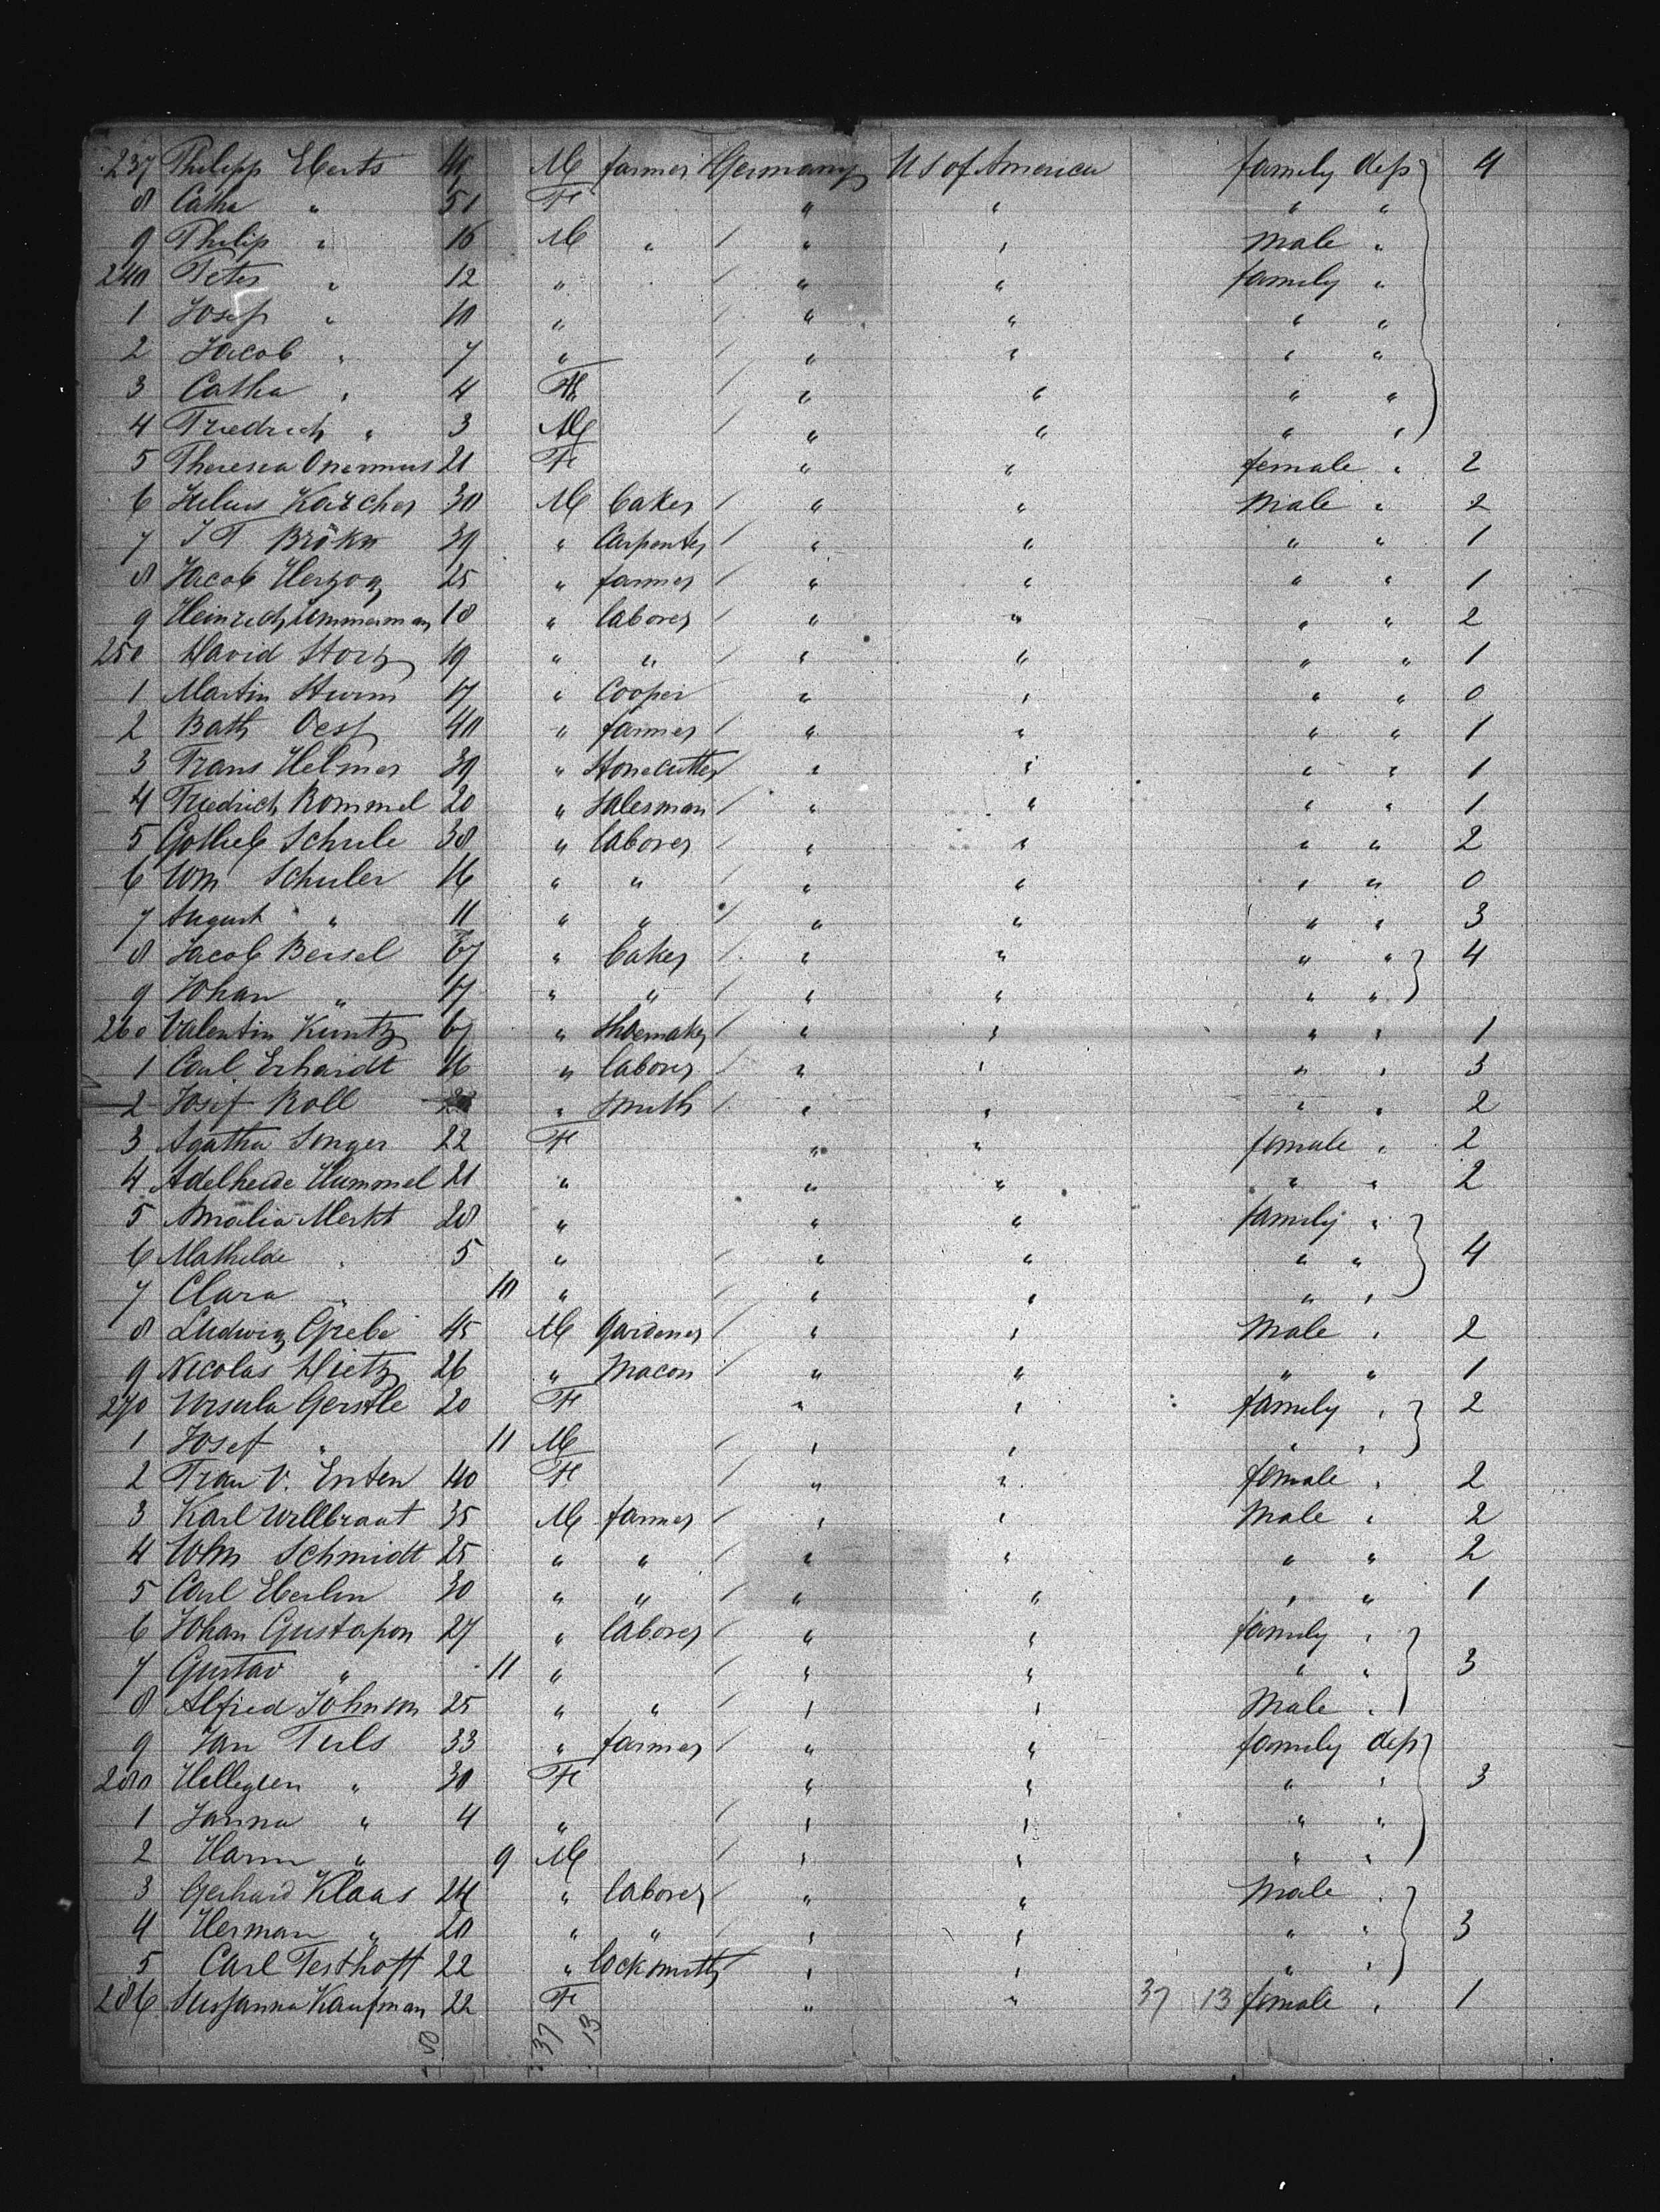 237 Philipp Eberts 49 M farmer Germany U S of America family dep 4
8 Catha " 51 F " " " "
9 Philip " 16 M " / " " male "
240 Peter " 12 " / " " family "
1 Josef " 10 " / " " " "
2 Jacob " 7 " / " " " "
3 Catha " 4 F / " " " "
4 Friedrich " 3 M / " " " "
5 Theresea 21 F " " female " 2
6 Julius Karcher 30 M baker / " " male " 2
7 J F Brökn 39 " carpenter / " " " " 1
8 Jacob Herzog 25 " farmer / " " " " 1
9 Heinrich 18 " laborer / " " " " 2
250 David Storz 19 " " / " " " " 1
1 Martin Sturm 17 " Cooper " " " " 0
2 Bath Oesf 40 " farmer / " " " " 1
3 Frans Helmer 39 " Stonecutter / " " " " 1
4 Friedrich Rommel 20 " salesman / " " " " 1
5 Gottlieb Schule 38 " laborer / " " " " 2
6 Wm Schuler 16 " " / " " " " 0
7 August " 11 " " / " " " " 3
8 Jacob Beisel 67 " baker / " " " " 4
9 Johan " 17 " " / " " " "
260 Valentin Kuntz 67 " Shoemaker / " " " " 1
1 Carl Erhardt 16 " laborer / " " " " 3
2 Josef Roll " smith / " " " " 2
3 Agatha Singer 22 F " " female " 2
4 Adelheide Hummel 21 " " " " " 2
5 Amalia Merkt 28 " " " family "
6 Mathilde " 5 " / " " " " 4
7 Clara " 10 " / " " " "
8 Ludwig Grebe 45 M gardener / " " male " 2
9 Nicolas Dietz 26 " Macon / " " " " 1
270 Ursula Gerstle 20 F " " family " 2
1 Josef " 11 M / " " " "
2 Frau V. Enten 40 F / " " female " 2
3 Karl Willbrant 35 M farmer / " " male " 2
4 Wm Schmidt 25 " " / " " " " 2
5 Carl Eberlin 30 " " / " " " " 1
6 Johan Gustafson 27 " laborer / " " family "
7 Gustav " 11 " / " " " " 3
8 Alfred Johnson 25 " " / " " male "
9 Jan Tuls 33 " farmer " " family dep
280 " 30 F " " " " 3
1 Janna " 4 " / " " " "
2 Harm " 9 M / " " " "
3 Gerhard Klaas 24 " laborer / " " male "
4 Herman " 20 " " / " " " " 3
5 Carl Testhoff 22 " locksmith " " " "
286 Sussanna Kaufman 22 F " " 37 13 female " 1
50 37 13